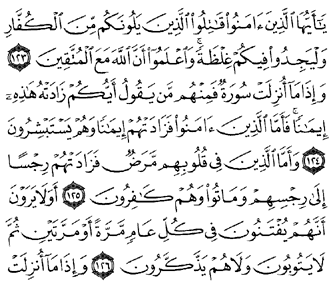 يَٰٓأَيُّهَا ٱلَّذِينَ ءَامَنُوا۟ قَٰتِلُوا۟ ٱلَّذِينَ يَلُونَكُم مِّنَ ٱلْكُفَّارِ
وَلْيَجِدُوا۟ فِيكُمْ غِلْظَةً ۚ وَٱعْلَمُوٓا۟ أَنَّ ٱللَّهَ مَعَ ٱلْمُتَّقِينَ ١٢٣
وَإِذَا مَآ أُنزِلَتْ سُورَةٌ فَمِنْهُم مَّن يَقُولُ أَيُّكُمْ زَادَتْهُ هَٰذِهِۦٓ
إِيمَٰنًا ۚ فَأَمَّا ٱلَّذِينَ ءَامَنُوا۟ فَزَادَتْهُمْ إِيمَٰنًا وَهُمْ يَسْتَبْشِرُونَ
١٢٤ وَأَمَّا ٱلَّذِينَ فِى قُلُوبِهِم مَّرَضٌ فَزَادَتْهُمْ رِجْسًا
إِلَىٰ رِجْسِهِمْ وَمَاتُوا۟ وَهُمْ كَٰفِرُونَ ١٢٥ أَوَلَا يَرَوْنَ
أَنَّهُمْ يُفْتَنُونَ فِى كُلِّ عَامٍ مَّرَّةً أَوْ مَرَّتَيْنِ ثُمَّ
لَا يَتُوبُونَ وَلَا هُمْ يَذَّكَّرُونَ ١٢٦ وَإِذَا مَآ أُنزِلَتْ